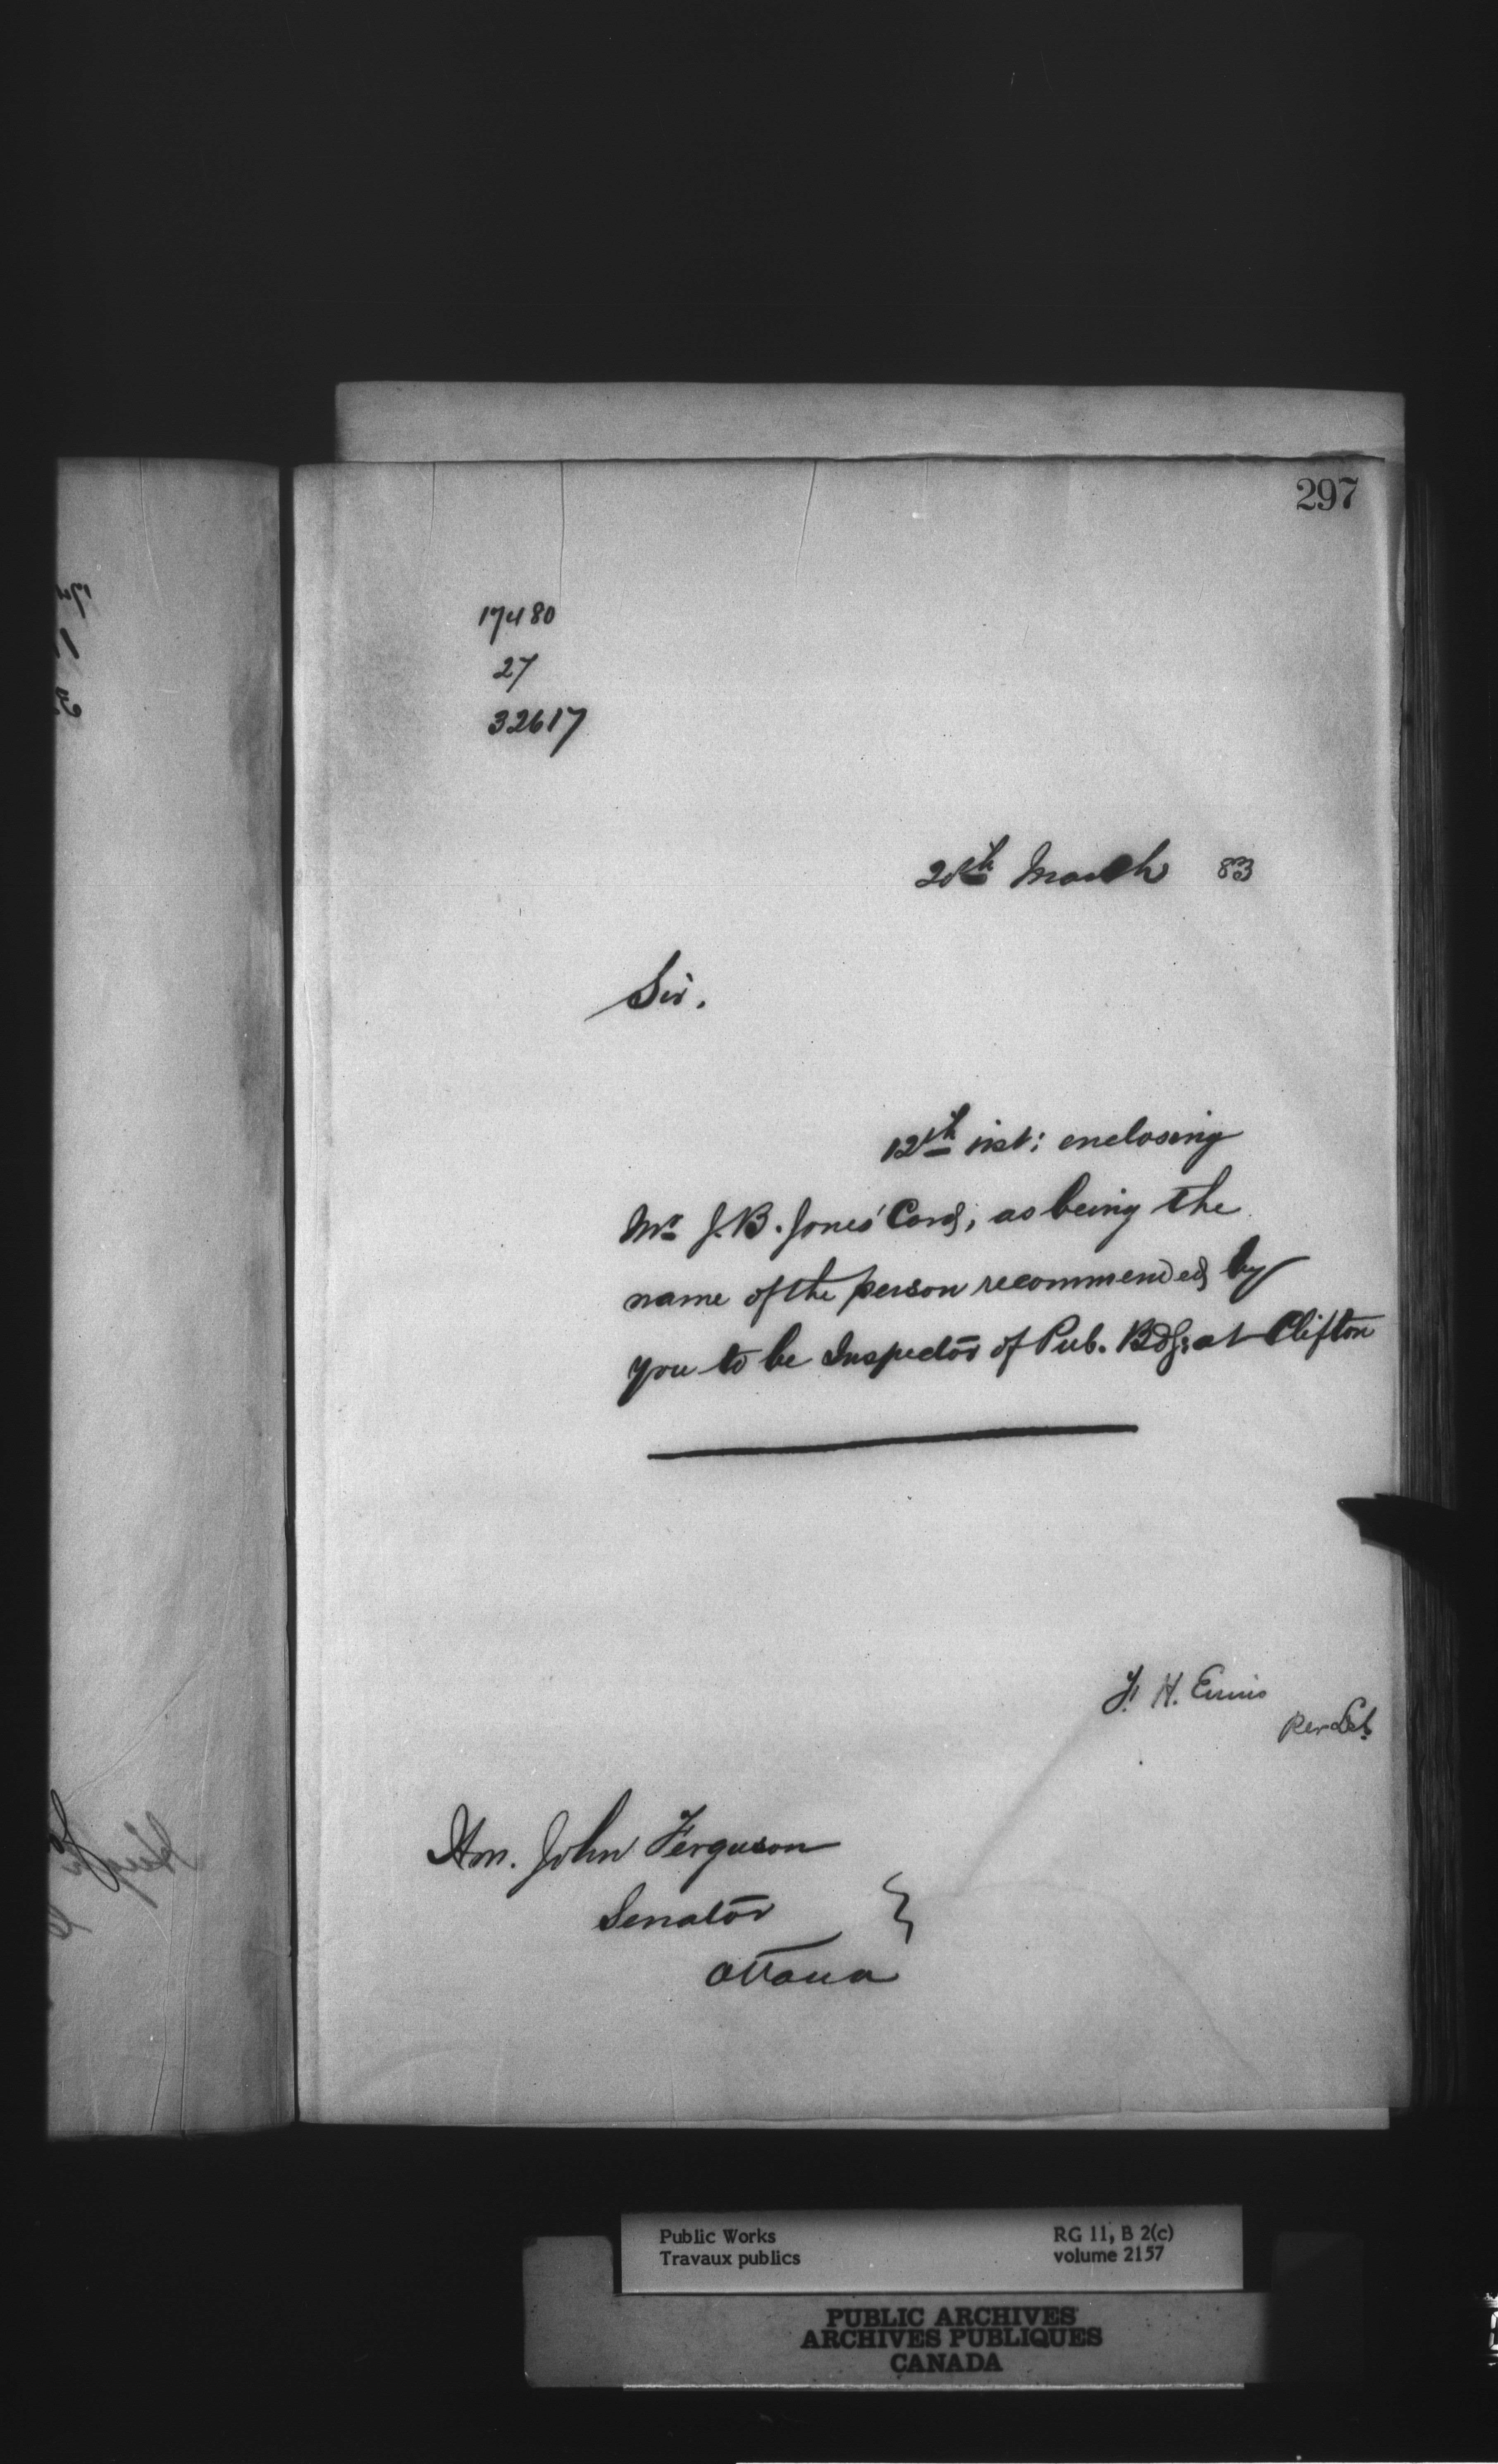 297
17480
27
32617
20th March 83
Sir.
12th inst; enclosing
Mr J. B. Jones' Card, as being the
name of the person recommended by
you to be Inspector of Pub. Bdg: at Clifton
F. H. Ennis
Per
Hon. John Ferguson
Senator
Ottawa
Public Works
Travaux publics
RG 11, B 2(c)
volume 2157
PUBLIC ARCHIVES
ARCHIVES PUBLIQUES
CANADA